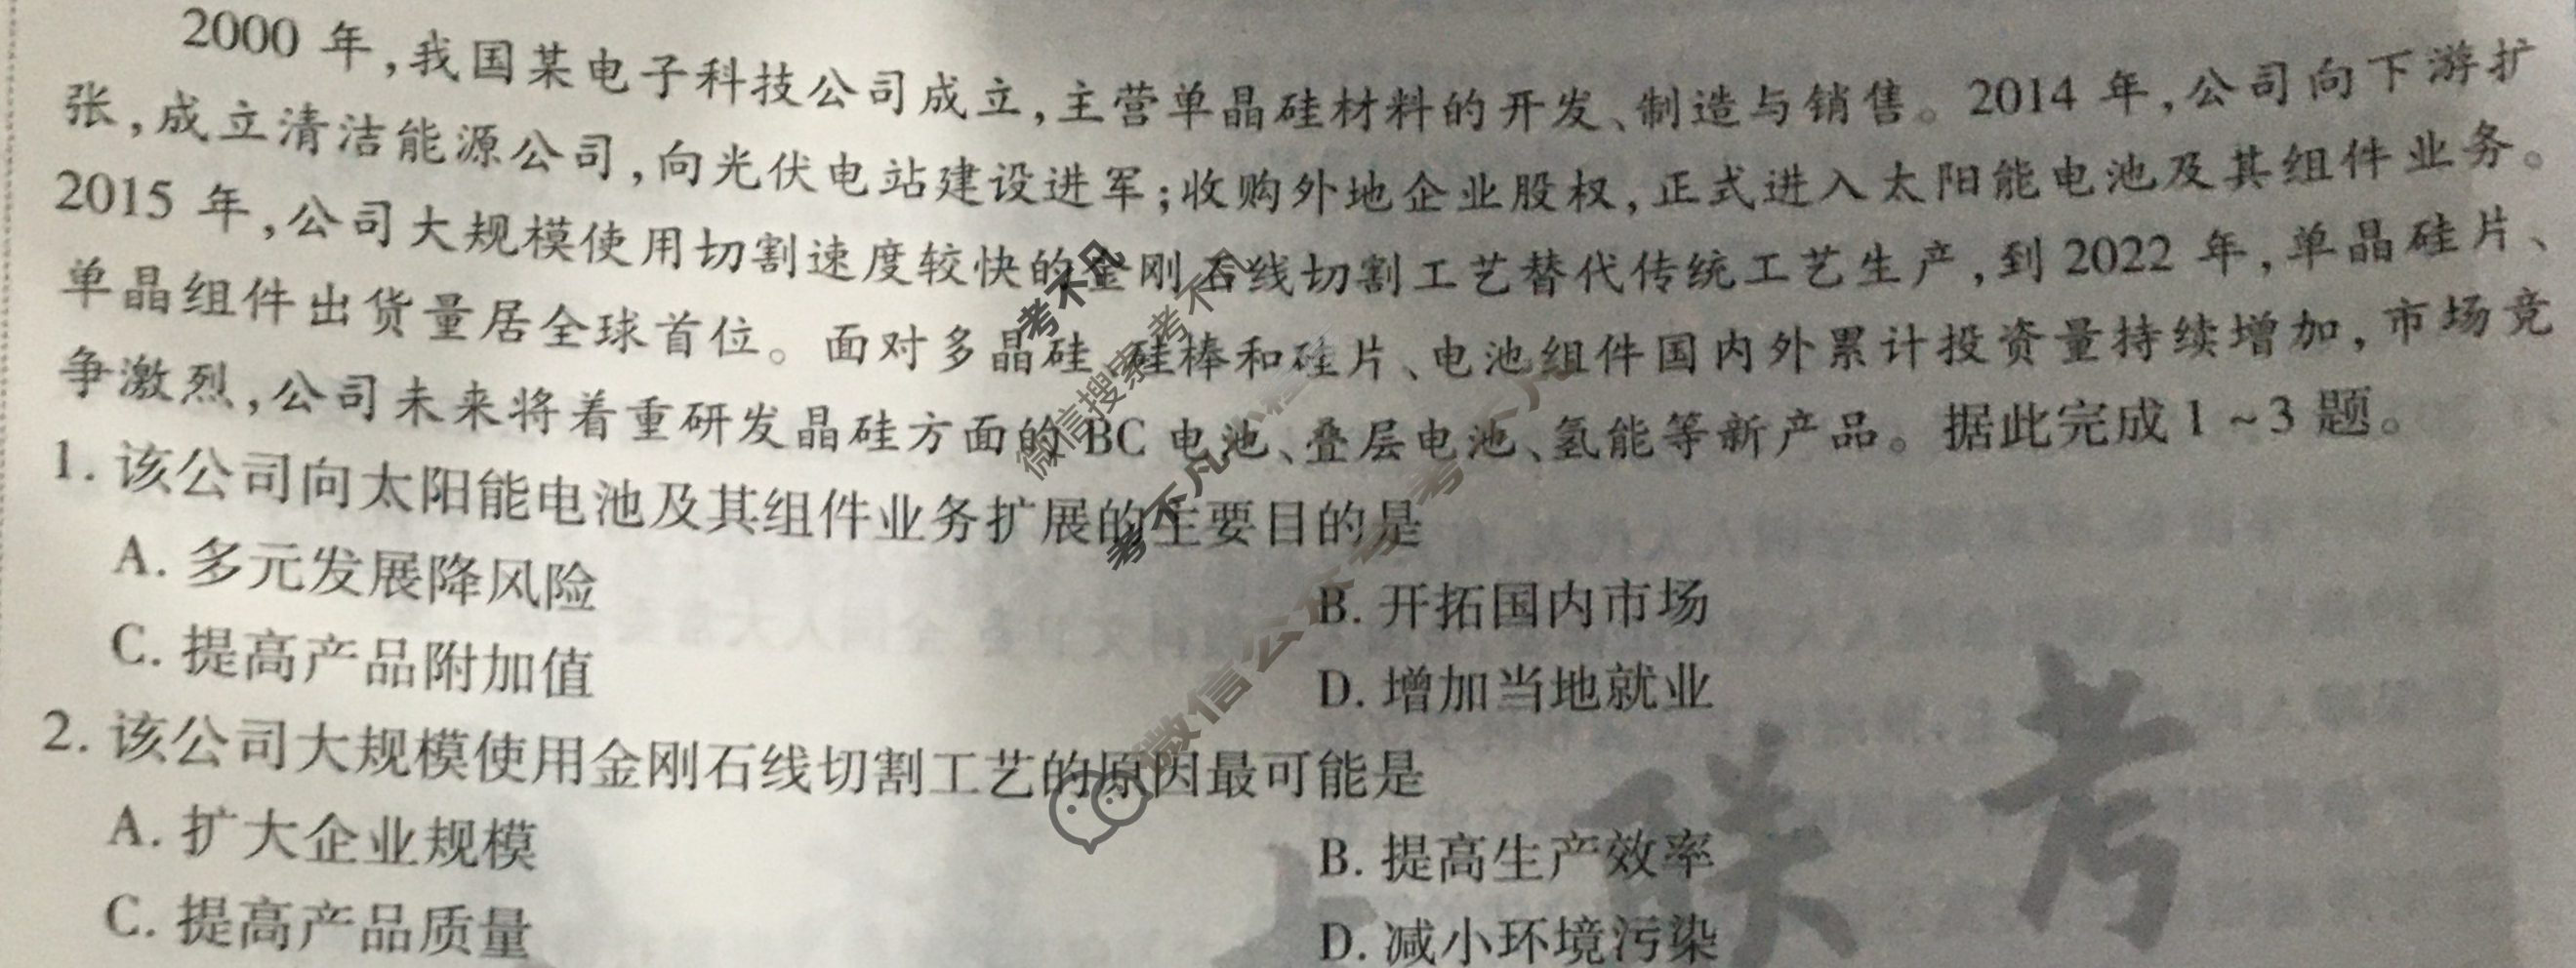 2000 年,我国某电子科技公司成立,主营单晶硅材料的开发、制造与销售。2014 年,公司向下游扩
张,成立清洁能源公司,向光伏电站建设进军;收购外地企业股权,正式进入太阳能电池及其组件业务。
2015 年,公司大规模使用切割速度较快的金刚石线切割工艺替代传统工艺生产,到 2022 年,单晶硅片、
单晶组件出货量居全球首位。面对多晶硅、硅棒和硅片、电池组件国内外累计投资量持续增加,市场竞
争激烈,公司未来将着重研发晶硅方面的 BC 电池、叠层电池、氢能等新产品。据此完成 1 ~ 3 题。
1. 该公司向太阳能电池及其组件业务扩展的主要目的是
A. 多元发展降风险
B. 开拓国内市场
C. 提高产品附加值
D. 增加当地就业
2. 该公司大规模使用金刚石线切割工艺的原因最可能是
A. 扩大企业规模
B. 提高生产效率
C. 提高产品质量
D. 减小环境污染
考不凡
微信搜索 考不凡
考不凡
微信公众号 考不凡
联考